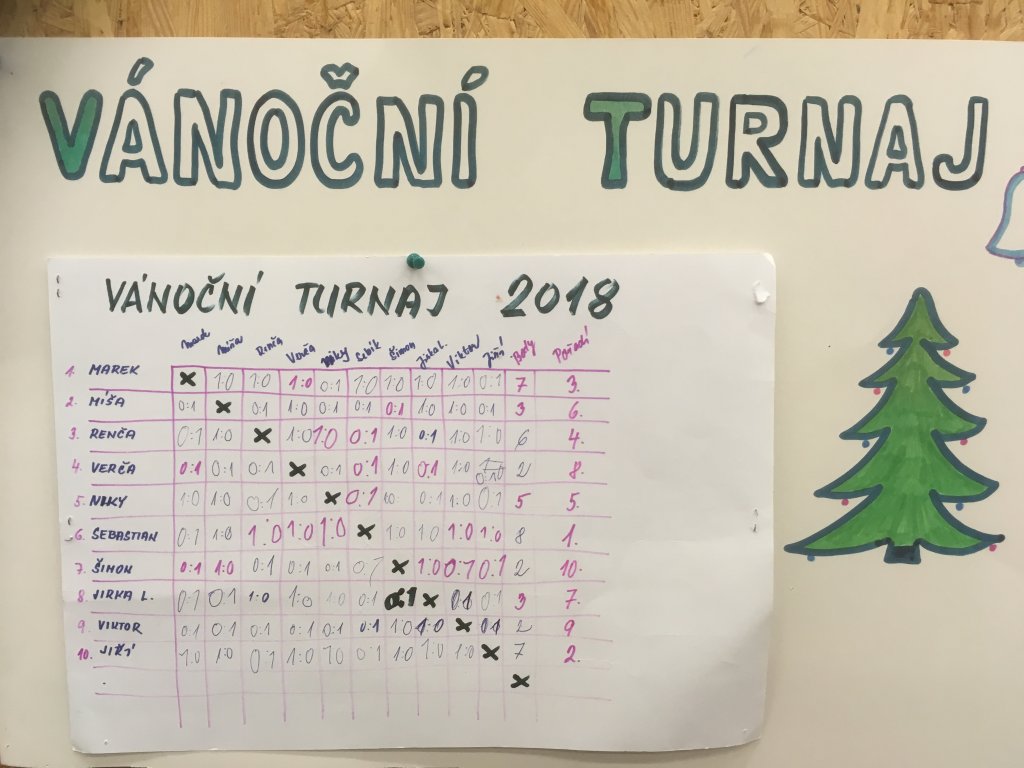 VÁNOČNÍ TURNAJ
VÁNOČNÍ TURNAJ 2018
Marek Míša Renča Verča Niky Sebík Šimon Jirka L. Viktor Jiří Body Pořadí
1. MAREK 1:0 1:0 1:0 0:1 1:0 1:0 1:0 1:0 0:1 7 3.
2. MÍŠA 0:1 0:1 1:0 0:1 0:1 0:1 1:0 1:0 0:1 3 6.
3. RENČA 0:1 1:0 1:0 1:0 0:1 1:0 0:1 1:0 1:0 6 4.
4. VERČA 0:1 0:1 0:1 0:1 0:1 1:0 0:1 1:0 2 8.
5. NIKY 1:0 1:0 0:1 1:0 0:1 0:1 1:0 0:1 5 5.
6. SEBASTIAN 0:1 1:0 1:0 1:0 1:0 1:0 1:0 1:0 1:0 8 1.
7. ŠIMON 0:1 1:0 0:1 0:1 0:1 0:1 1:0 0:1 0:1 2 10.
8. JIRKA L. 0:1 0:1 1:0 1:0 1:0 0:1 0:1 0:1 0:1 3 7.
9. VIKTOR 0:1 0:1 0:1 0:1 0:1 0:1 1:0 1:0 0:1 2 9
10. JIŘÍ 1:0 1:0 0:1 1:0 1:0 0:1 1:0 1:0 1:0 7 2.